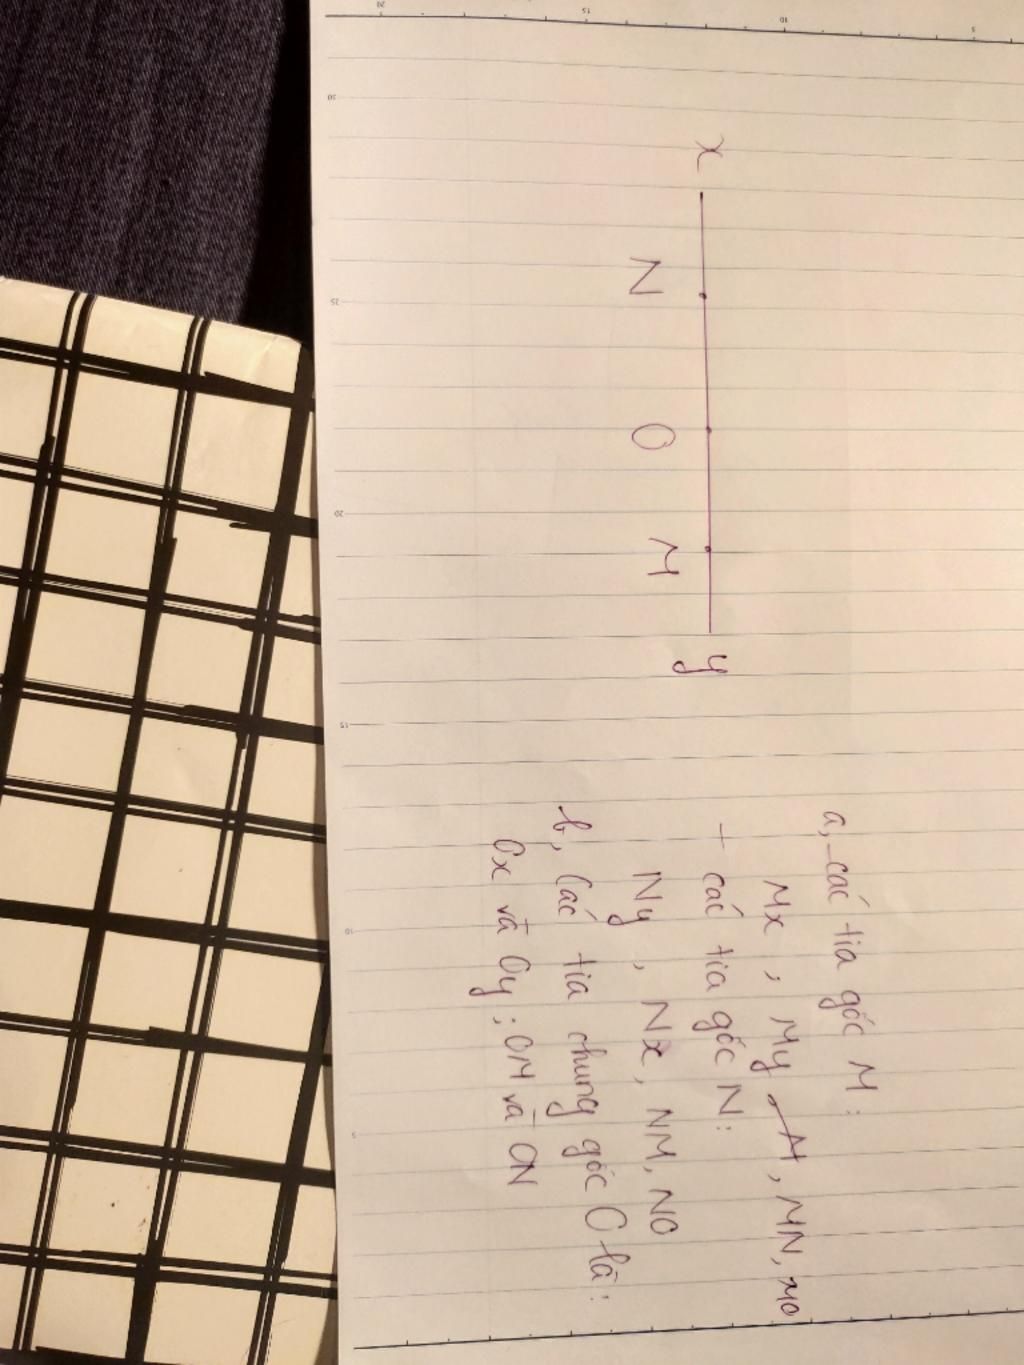 x N O M y
a, các tia gốc M:
Mx, My, MN, MO
+ các tia gốc N:
Ny, Nx, NM, NO
b, Các tia chung gốc O là:
Ox và Oy; OM và ON
20 15 10 5
30
25
20
15
10
5